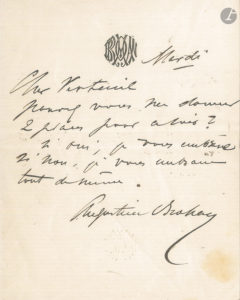 Mardi
Cher Verteuil
pouvez vous me donner
2 places pour a vis?
si oui, je vous embrasse
si non, je vous embrasse
tout de même.
Augustine Brohan